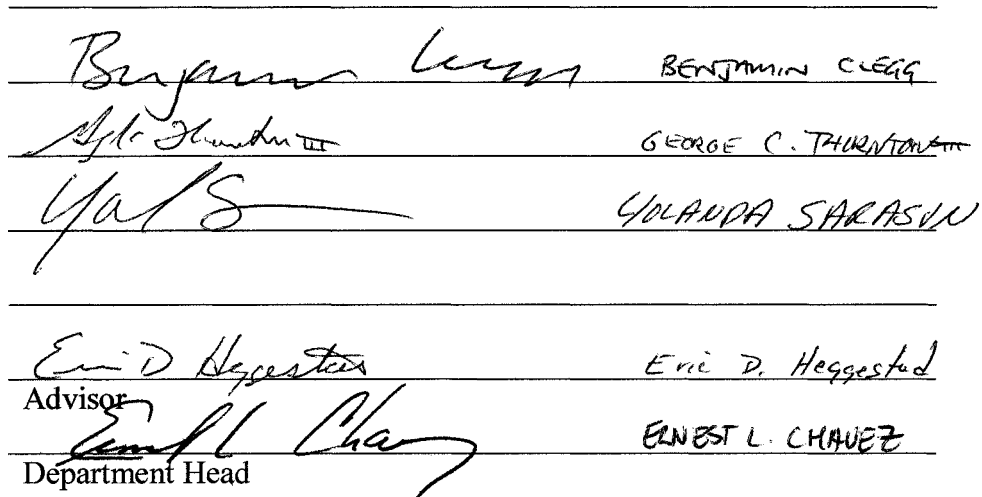 Benjamin Clegg BENJAMIN CLEGG
III GEORGE C. THORNTON III
YOLANDA SARASON
Eric D Heggestad Eric D. Heggestad
Advisor
Ernest L Chavez ERNEST L. CHAVEZ
Department Head